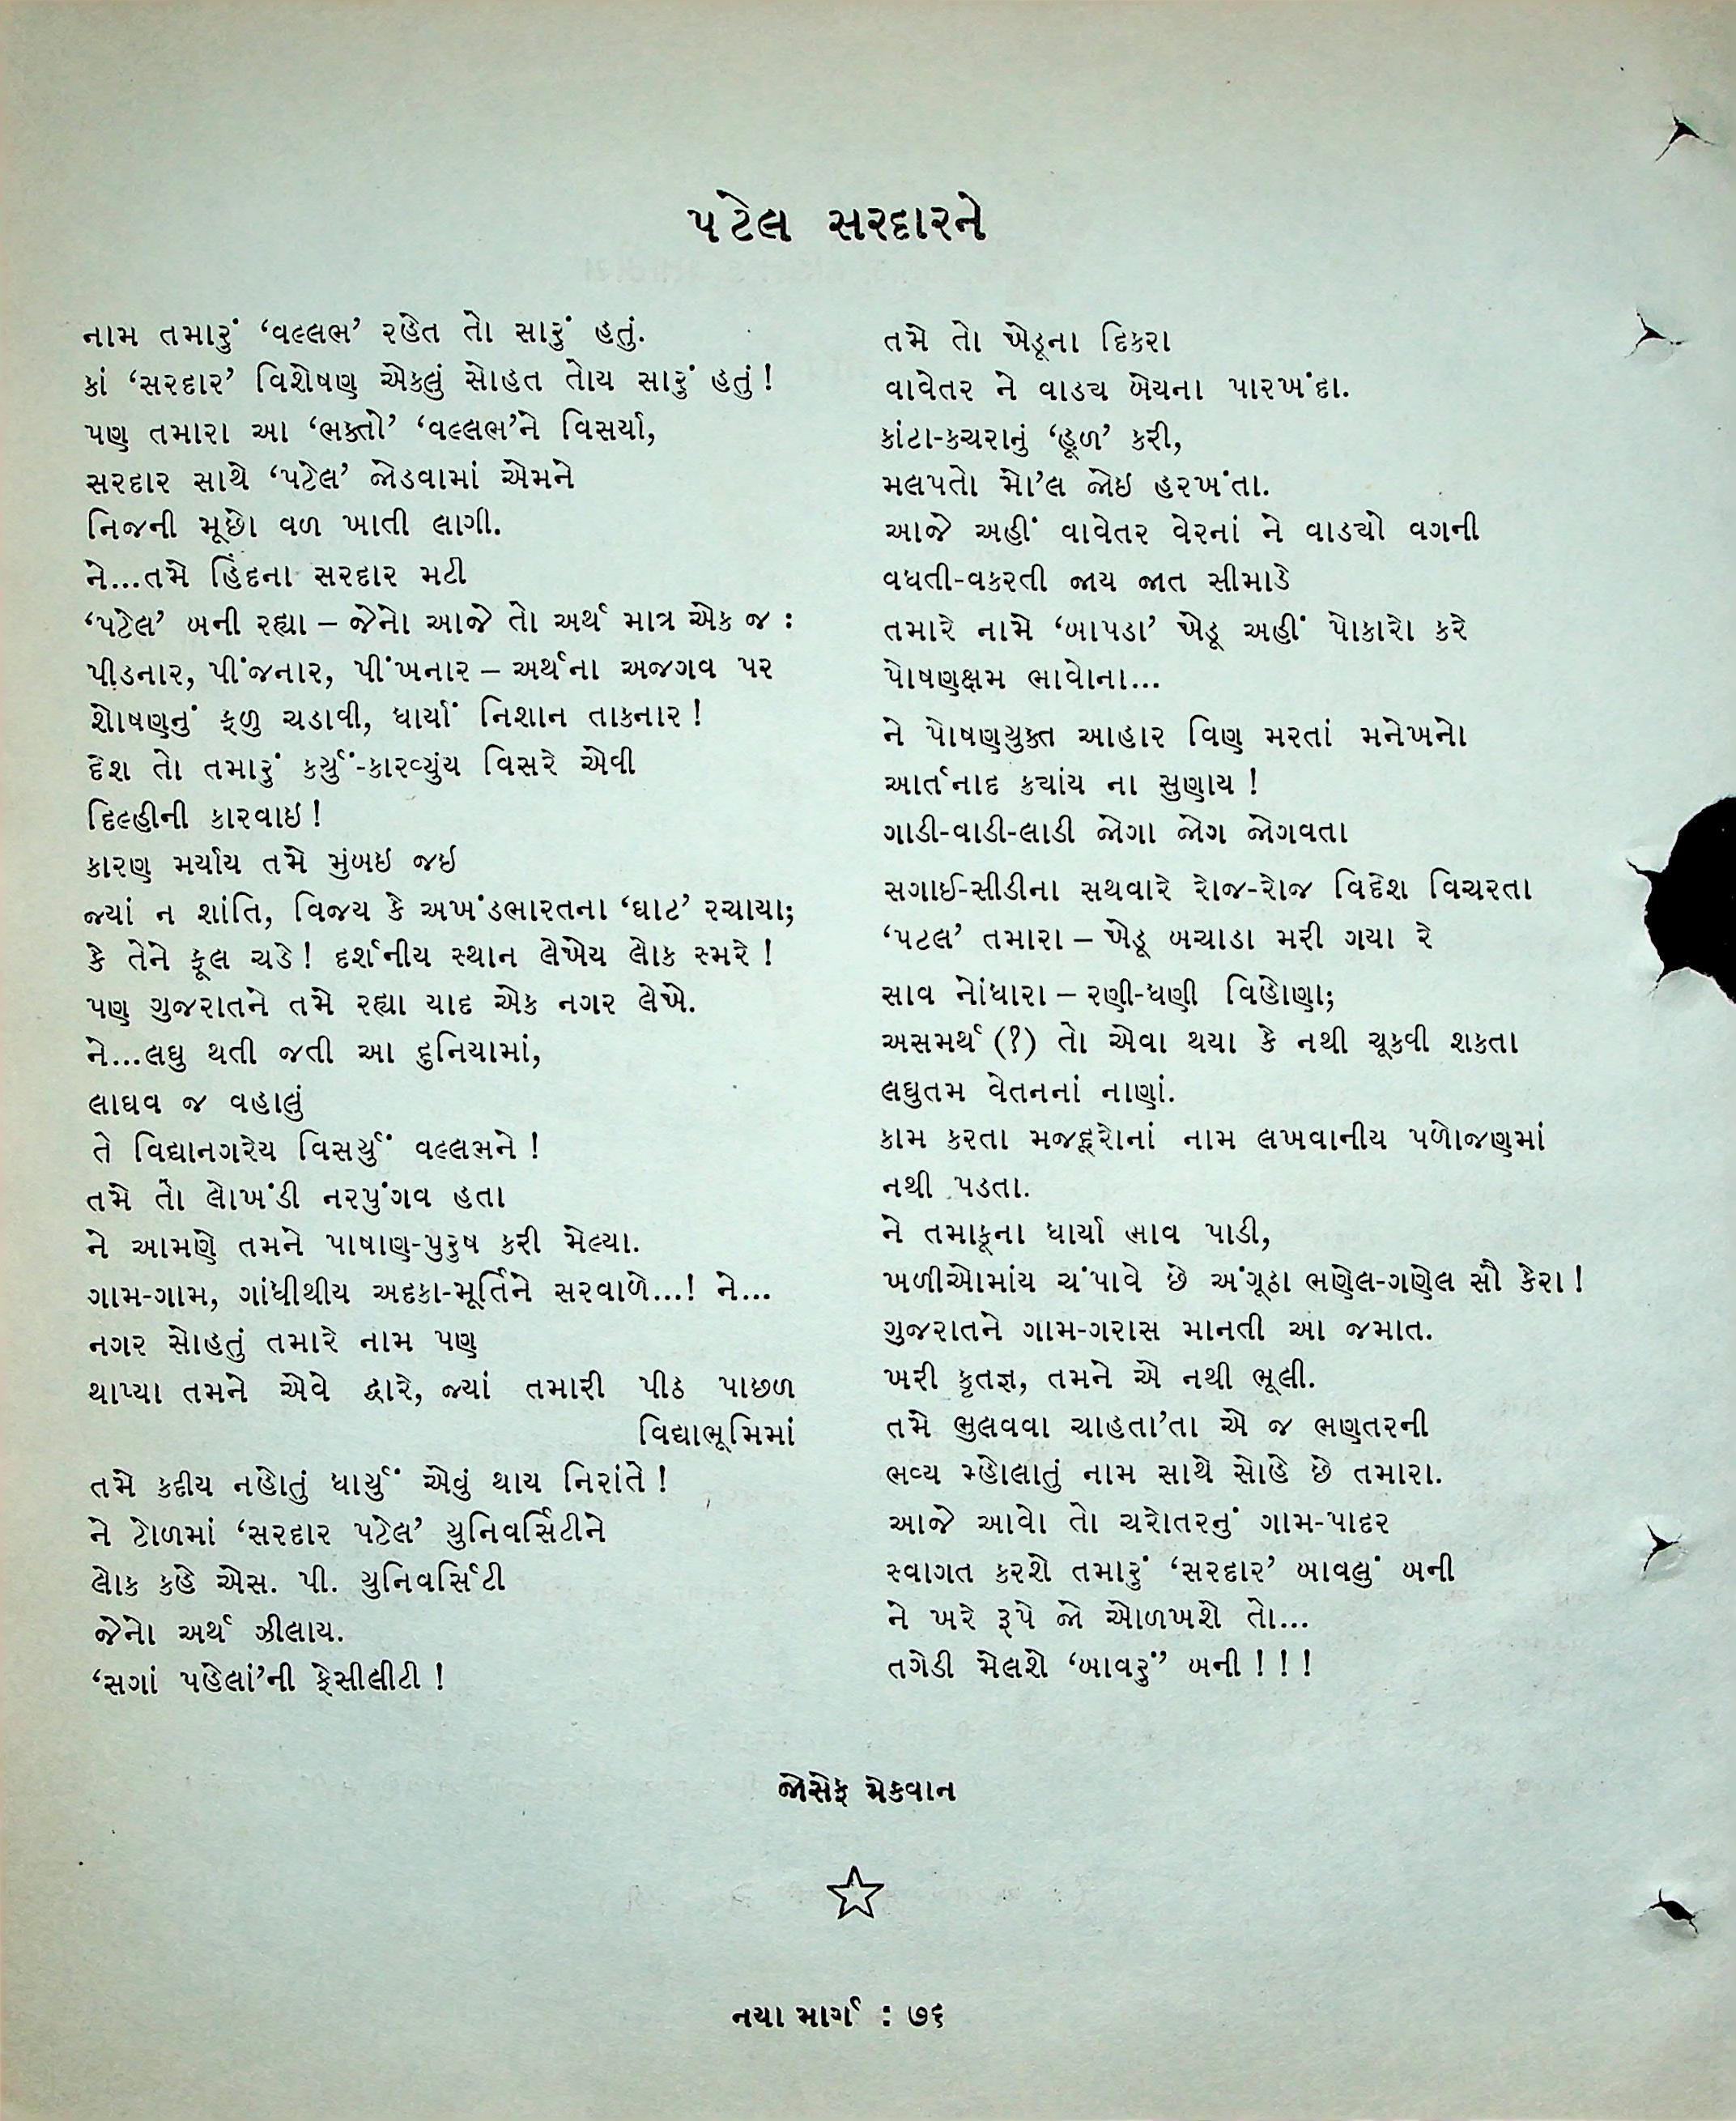 પટેલ સરદારને
નામ તમારું ‘વલ્લભ’ રહેત તો સારું હતું.
કાં ‘સરદાર’ વિશેષણ એકલું સોહત તોય સારું હતું!
પણ તમારા આ ‘ભક્તો’ ‘વલ્લભ’ને વિસર્યા,
સરદાર સાથે ‘પટેલ’ જોડવામાં એમને
નિજની મૂછો વળ ખાતી લાગી.
ને...તમે હિંદના સરદાર મટી
‘પટેલ’ બની રહ્યા – જેનો આજે તો અર્થ માત્ર એક જ :
પીડનાર, પીંજનાર, પીંખનાર – અર્થના અજગવ પર
શોષણનું ફળુ ચડાવી, ધાર્યાં નિશાન તાકનાર!
દેશ તો તમારું કર્યું-કારવ્યુંય વિસરે એવી
દિલ્હીની કારવાઇ!
કારણ મર્યાય તમે મુંબઇ જઇ
જ્યાં ન શાંતિ, વિજય કે અખંડભારતના ‘ઘાટ’ રચાયા;
કે તેને ફૂલ ચડે! દર્શનીય સ્થાન લેખેય લોક સ્મરે!
પણ ગુજરાતને તમે રહ્યા યાદ એક નગર લેખે.
ને...લઘુ થતી જતી આ દુનિયામાં,
લાઘવ જ વહાલું
તે વિદ્યાનગરેય વિસર્યું વલ્લભને!
તમે તો લોખંડી નરપુંગવ હતા
ને આમણે તમને પાષાણ-પુરુષ કરી મેલ્યા.
ગામ-ગામ, ગાંધીથીય અદકા-મૂર્તિને સરવાળે...! ને...
નગર સોહતું તમારે નામ પણ
થાપ્યા તમને એવે દ્વારે, જ્યાં તમારી પીઠ પાછળ
વિદ્યાભૂમિમાં
તમે કદીય નહોતું ધાર્યું એવું થાય નિરાંતે!
ને ટોળમાં ‘સરદાર પટેલ’ યુનિવર્સિટીને
લોક કહે એસ. પી. યુનિવર્સિટી
જેનો અર્થ ઝીલાય.
‘સગાં પહેલાં’ની ફેસીલીટી!
તમે તો ખેડૂના દિકરા
વાવેતર ને વાડચ બેયના પારખંદા.
કાંટા-કચરાનું ‘હૂળ’ કરી,
મલપતો મો’લ જોઇ હરખંતા.
આજે અહીં વાવેતર વેરનાં ને વાડચો વગની
વધતી-વકરતી જાય જાત સીમાડે
તમારે નામે ‘બાપડા’ ખેડૂ અહીં પોકારો કરે
પોષણક્ષમ ભાવોના...
ને પોષણયુક્ત આહાર વિણ મરતાં મનેખનો
આર્તનાદ કયાંય ના સુણાય!
ગાડી-વાડી-લાડી જોગા જોગ જોગવતા
સગાઈ-સીડીના સથવારે રોજ-રોજ વિદેશ વિચરતા
‘પટલ’ તમારા – ખેડૂ બચાડા મરી ગયા રે
સાવ નોંધારા – રણી-ધણી વિહોણા;
અસમર્થ (?) તો એવા થયા કે નથી ચૂકવી શકતા
લઘુતમ વેતનનાં નાણાં.
કામ કરતા મજદૂરોનાં નામ લખવાનીય પળોજણમાં
નથી પડતા.
ને તમાકૂના ધાર્યા ભાવ પાડી,
ખળીઓમાંય ચંપાવે છે અંગૂઠા ભણેલ-ગણેલ સૌ કેરા!
ગુજરાતને ગામ-ગરાસ માનતી આ જમાત.
ખરી કૃતજ્ઞ, તમને એ નથી ભૂલી.
તમે ભુલવવા ચાહતા’તા એ જ ભણતરની
ભવ્ય મ્હોલાતું નામ સાથે સોહે છે તમારા.
આજે આવો તો ચરોતરનું ગામ-પાદર
સ્વાગત કરશે તમારું ‘સરદાર’ બાવલું બની
ને ખરે રૂપે જો ઓળખશે તો...
તગેડી મેલશે ‘બાવરું” બની!!!
જોસેફ મેકવાન
નયા માર્ગ : ૭૬